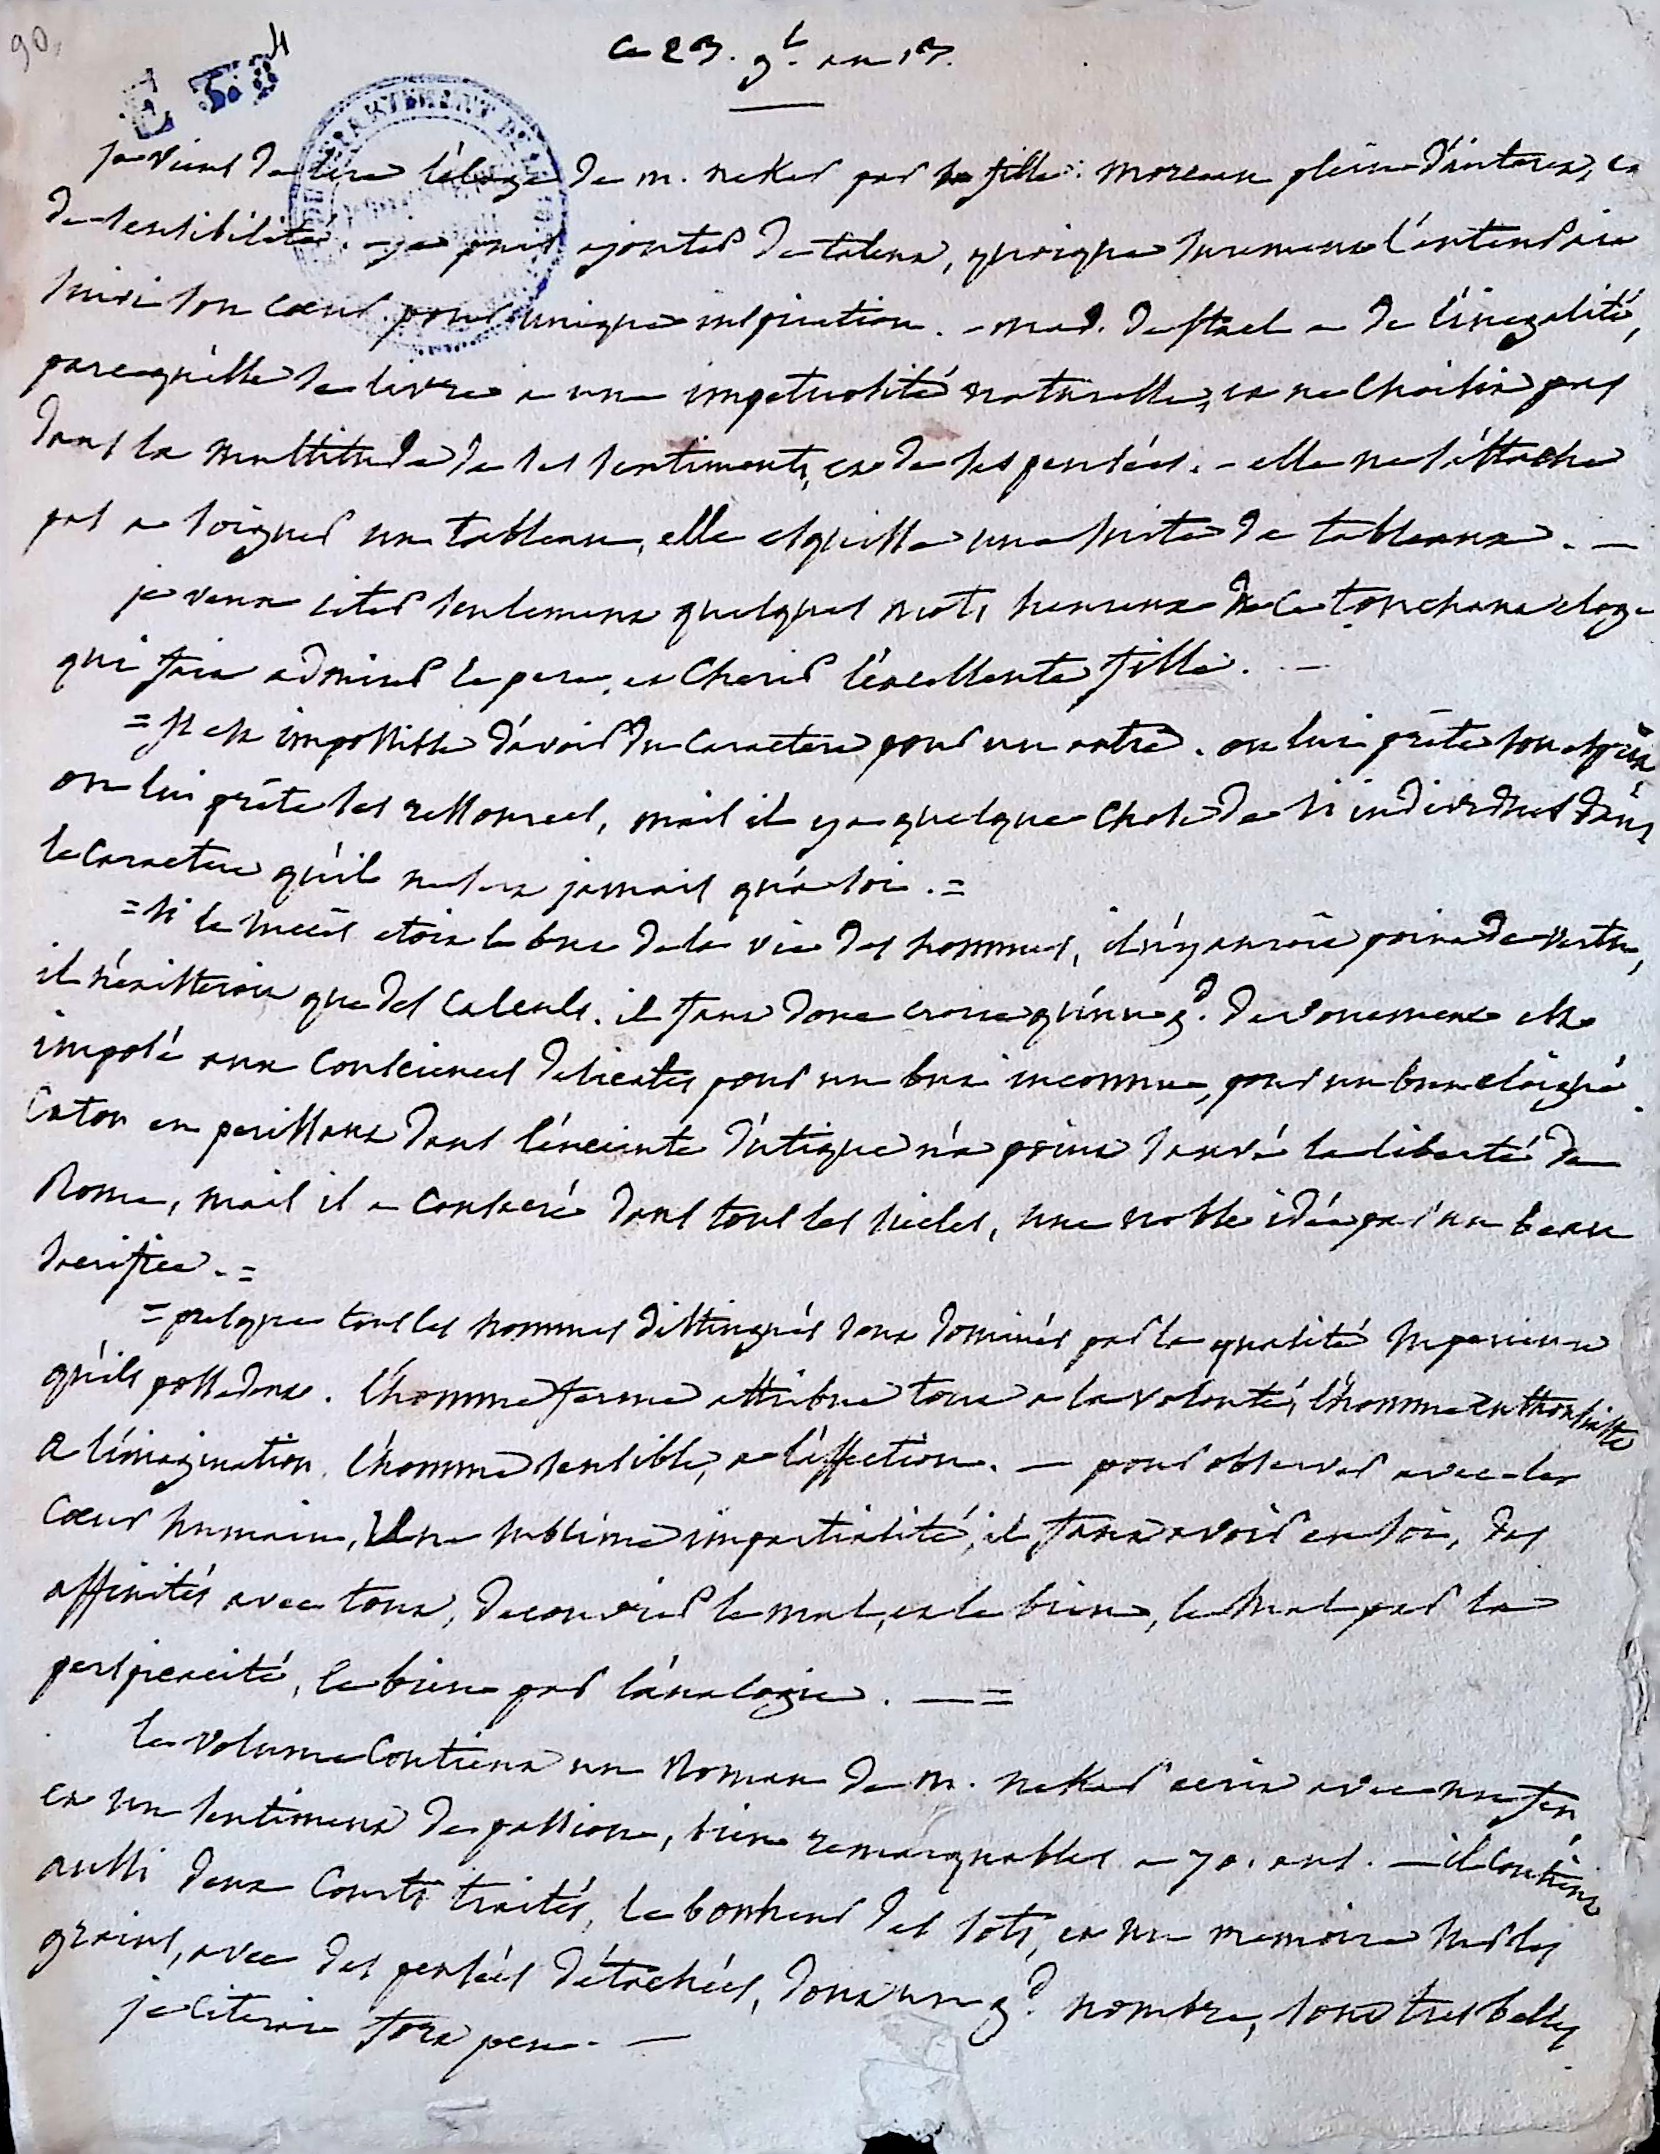 90.
E 5.3 4
ce 23. g.l an 13.
je viens de lire l'éloge de m. neker par sa fille: morceau plein d'interest, et
de sensibilité. - je puis ajouter de talent, quoique surement l'auteur ait
suivi son cœur pour unique inspiration. - mad. de stael a de l'inegalité,
parcequ'elle se livre a une impetuosité naturelle, et ne choisit pas
dans la multitude de ses sentiments, et de ses pensées. - elle ne s'attache
pas a soigner un tableau, elle esquisse une suite de tableaux. -
je veux citer seulement quelques mots heureux de ce touchant eloge
qui fait admirer le pere, et cherir l'excellente fille. -
= il est impossible d'avoir du caractere pour un autre. on lui prête son esprit
on lui prête ses ressources, mais il y a quelque chose de si individuel dans
le caractere qu'il ne sert jamais qu'a soi. =
= si le succès etoit le but de la vie des hommes, il n'y auroit point de vertu,
il n'existeroit que des calculs. il faut donc croire qu'un g.d devouement est
imposé aux consciences delicates pour un but inconnu, pour un but eloigné.
Caton en perissant dans l'enceinte d'utique n'a point sauvé la liberté de
Rome, mais il a consacré dans tous les siecles, une noble idée par un beau
sacrifice. =
= presque tous les hommes distingués sont dominés par la qualité superieure
qu'ils possedent. l'homme ferme attribue tout a la volonté, l'homme enthousiaste
a l'imagination, l'homme sensible, a l'affection. - pour observer avec le
cœur humain, une sublime impartialité, il faut avoir en soi, des
affinités avec tout, decouvrir le mal, et le bien, le mal par la
perspicacité, le bien par l'analogie. - =
le volume contient un Roman de m. neker ecrit avec un feu
et un sentiment de passion, bien remarquables a 70. ans. - il contient
aussi deux courts traités, le bonheur des sots, et un memoire sur les
grains, avec des pensées détachées, dont un g.d nombre, sont tres belles
je citerai fort peu. -